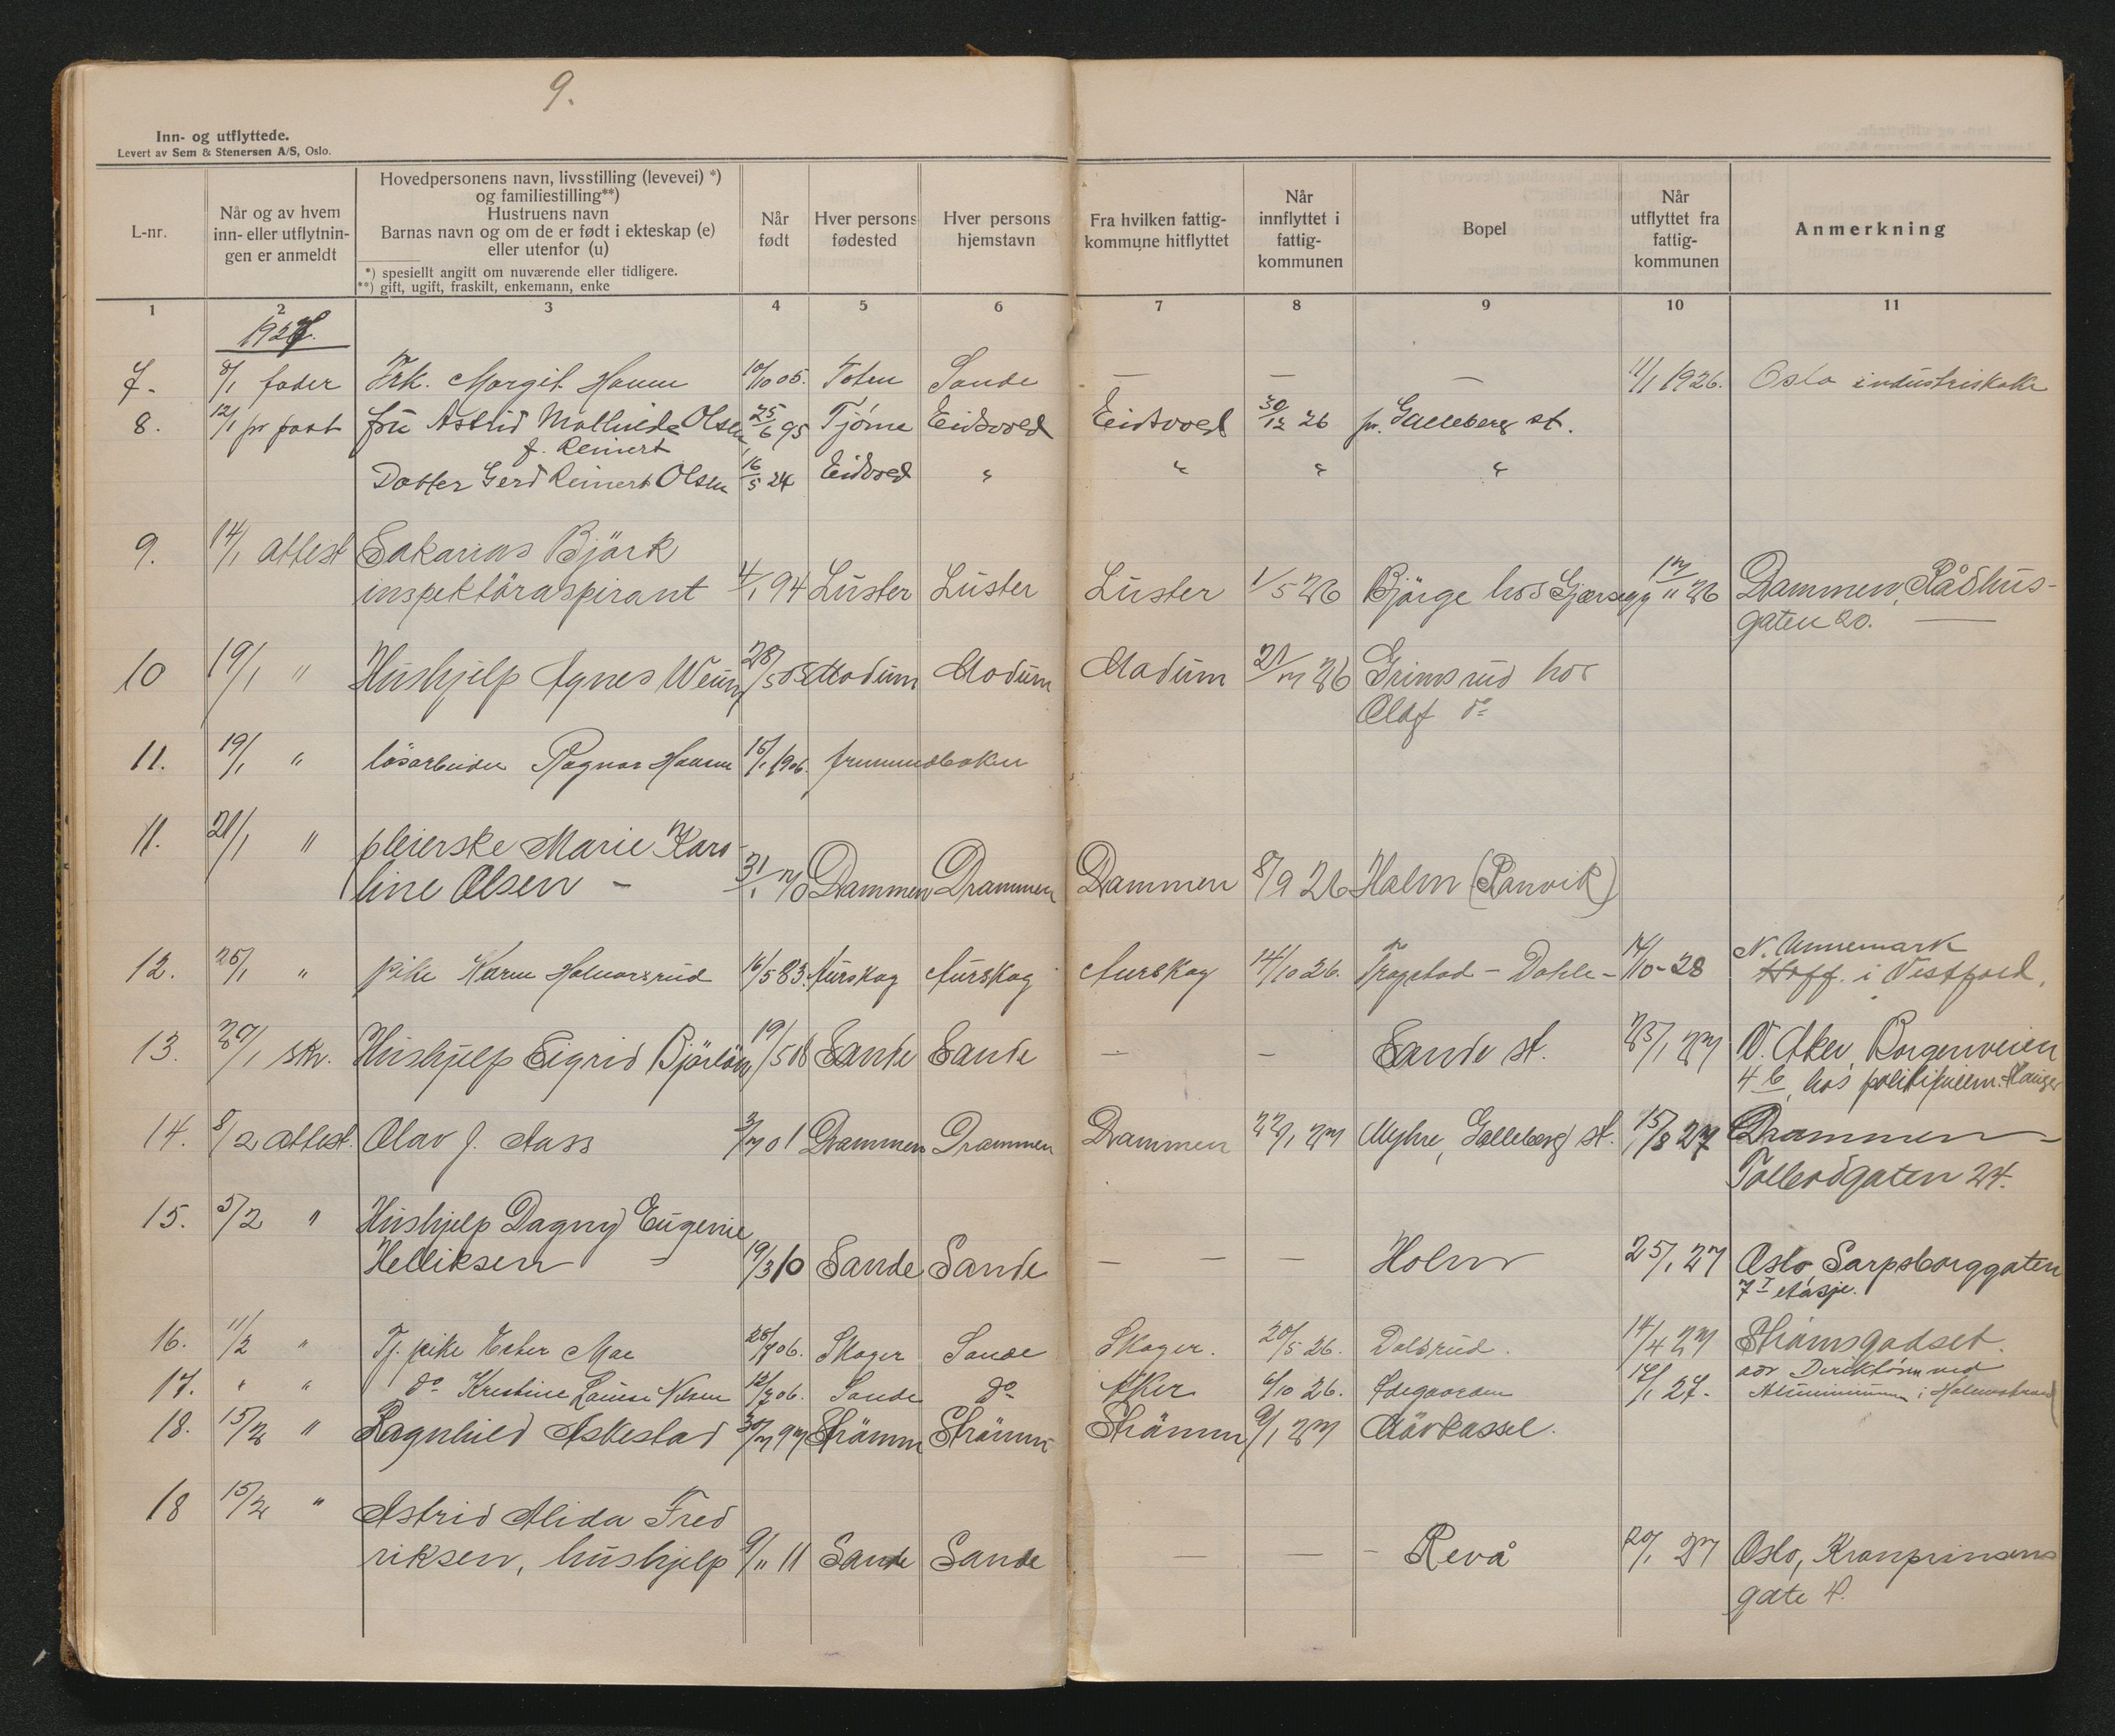 9.
Inn- og utflyttede.
Levert av Sem & Stenersen A/S, Oslo.
L-nr.
Når og av hvem inn- eller utflytnin- gen er anmeldt
Hovedpersonens navn, livsstilling (levevei) *)
og familiestilling**)
Hustruens navn
Barnas navn og om de er født i ekteskap (e)
eller utenfor (u)
*) spesiellt angitt om nuværende eller tidligere.
**) gift, ugift, fraskilt, enkemann, enke
Når født
Hver persons fødested
Hver persons hjemstavn
Fra hvilken fattig- kommune hitflyttet
Når innflyttet i fattig- kommunen
Bopel
Når utflyttet fra fattig- kommunen
Anmerkning
1 2 3 4 5 6 7 8 9 10 11
1927.
7. 8/1 fader Frk. Margit Hansen 10/10 05. Toten Sande — — — 11/1 1926. Oslo industriskole
8. 12/1 pr post fru Astrid Mathilde Olsen 25/6 95 Tjöme Eidsvold Eidsvold 30/12 26 pr. Galleberg st.
f. Reinert
Datter Gerd Reinert Olsen 16/5 24 Eidsvold " " " "
9. 14/1 attest Sakarias Björk
inspektöraspirant 4/1 94 Luster Luster Luster 1/5 26 Björge hos Gjersegg 17/11 26 Drammen, Rådhus-
gaten 20. —
10 19/1 " Hushjelp Agnes 28/5 05 Modum Modum Modum 21/7 26 Grimsrud hos
Olaf do
11. 19/1 " lösarbeider Ragnar Hansen 15/1 1906. fremmedboken
11. 21/1 " pleierske Marie Karo-
line Olsen – 31/1 70 Drammen Drammen Drammen 8/9 26 Holm (Ranvik)
12. 25/1 " pike Karen Halvorsrud 16/5 83. Aurskog Aurskog Aurskog 14/10 26. Trogstad – Dahle – 14/10-28 N. Unnemark
Hoff. i Vestfold.
13. 29/1 skr. Hushjelp Sigrid 19/5 08 Sande Sande — — Sande st. 25/1 27 V. Aker Borgenveien
4 b, hos Hauger
14. 8/2 attest. Olav J. Aass 3/7 01 Drammen Drammen Drammen 22/1 27 Myhre, Galleberg st. 15/8 27 Drammen –
Tollbodgaten 24.
15. 5/2 " Hushjelp Dagny Eugenie
Helliksen – 19/3 10 Sande Sande — — — Holm 25/1 27 Oslo, Sarpsborggaten
7 I etasje.
16. 11/2 " Tj. pike Ester Moe 06. Skoger Sande Skoger. 20/5 26. Dalsrud. 14/4 27 Strömsgodset.
17. " " do Kristine Louise Nilsen 12/7 06. Sande do Aker 6/10 26. 17/1 27. adr Direktören ved
Aluminium i Holmestrand
18. 15/2 " Ragnhild Askestad 30/7 97 Strömm Strömm Strömm 9/1 27
18 15/2 " Astrid Alida Fred
riksen, hushjelp 9/11 11 Sande Sande — — – Revå 20/1 27 Oslo, Kronprinsens
gate 4.